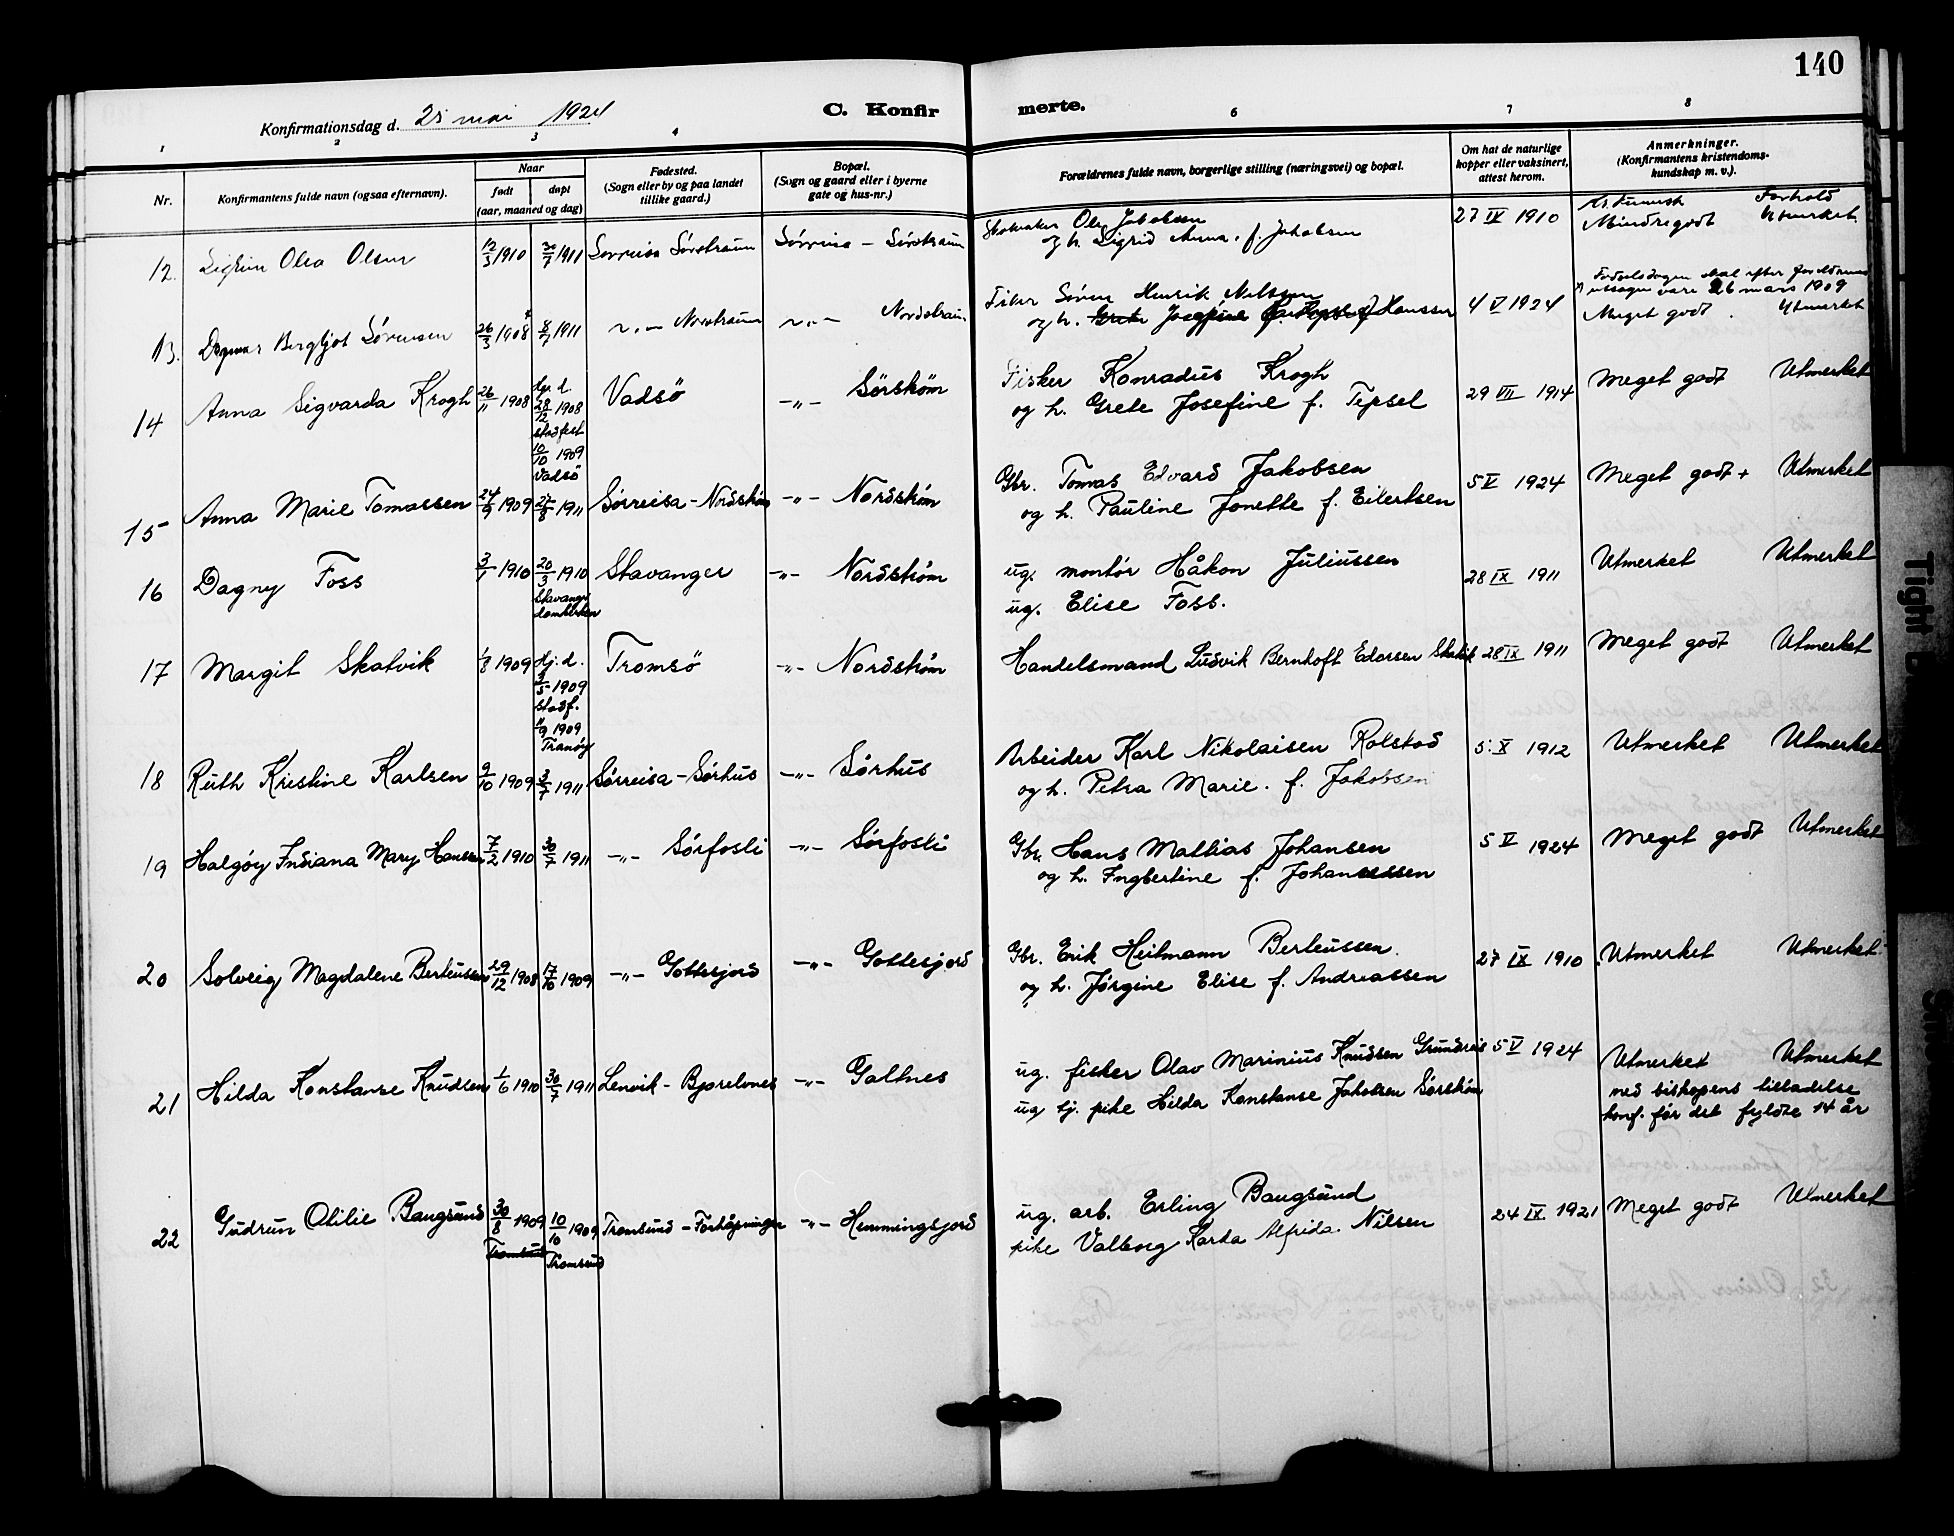 140
Konfirmationsdag d. 25 mai 1924
C. Konfirmerte.
1 2 3 4 6 7 8
Nr.
Konfirmantens fulde navn (ogsaa efternavn).
Naar
født døpt
(aar, maaned og dag)
Fødested.
(Sogn eller by og paa landet
tillike gaard.)
Bopæl.
(Sogn og gaard eller i byerne
gate og hus-nr.)
Forældrenes fulde navn, borgerlige stilling (næringsvei) og bopæl.
Om hat de naturlige
kopper eller vaksinert,
attest herom.
Anmerkninger.
(Konfirmantens kristendoms-
kundskap m. v.).
Forhold
12. Olea Olsen 12/3 1910 30/7 1911 Sørreisa Sørstraum Sørreisa - Sørstraum
Skomaker Ole Jakobsen
og h. Sigrid Anna f. Jakobsen
27 IX 1910 Mindre godt Utmerket.
13. Dagmar Bergljot Sørensen 26/3 1908 8/7 1911 -"- Nordstraum -"- Nordstraum
Fisker Søren Henrik Nilssen
og h. Grete Josefine f. Hanssen
4 V 1924
Fødselsdagen skal efter forældrenes
utsagn være 26 mars 1909
Meget godt. Utmerket
14 Anna Sigvarda Krogh 26/11 1908
hj. d.
28/12 1908
stadfest
10/10 1909
Vadsö
Vadsö -"- Sørskøm
Fisker Konradus Krogh
og h. Grete Josefine f. Tepsel
29 VII 1914 Meget godt Utmerket
15 Anna Marie Tomassen 24/9 1909 27/8 1911 Sørreisa - Nordskøm -"- Nordskøm
Gbr. Tomas Edvard Jakobsen
og h. Pauline Jonette f. Eilertsen
5 V 1924 Meget godt + Utmerket
16 Dagny Foss 3/1 1910 20/3 1910
Stavanger
domkirken
Stavanger -"- Nordskøm
ug. montør Håkon Juliussen
ug. Elise Foss.
28 IX 1911 Utmerket Utmerket
17 Margit Skatvik 1/3 1909
hj. d.
5 1909
stadf.
9 1909
Tranöy
Tromsö -"- Nordskøm
Handelsmand Ludvik Bernhoft Edorsen Skatvik
28 IX 1911 Meget godt Utmerket
18 Ruth Kristine Karlsen 9/10 1909 3/7 1911 Sørreisa - Sørhus -"- Sørhus
Arbeider Karl Nikolaisen Rolstad
og h. Petra Marie. f. Jakobsen
5. X 1912 Utmerket Utmerket
19 Halgöy Indiana Mary Hanssen 7/2 1910 30/7 1911 -"- Sørfosli -"- Sørfosli
Gbr. Hans Mathias Johansen
og h. Ingbertine f. Johannessen
5 V 1924 Meget godt Utmerket
20 Solveig Magdalene Berteussen 29/12 1908 17/10 1909 -"- Gottesjord -"- Gottesjord
Gbr. Erik Heitmann Berteussen.
og h. Jörgine Elise f. Andreassen
27 IX 1910 Utmerket Utmerket
21 Hilda Konstanse Knudsen 1/6 1910 30/7 1911 Lenvik - Bjorelvnes -"- Galtnes
ug. fisker Olav Marinius Knudsen Grundreis
ug tj. pike Hilda Konstanse Jakobsen Sørskøm
5 V 1924 Utmerket Utmerket
med biskopens tilladelse
konf. før det fyldte 14 år
22 Gudrun Otilie Baugsund 30/8 1909 10/10 1909
Tromsund
Tromsund
Tromsund - Forhåpningen -"- Hemmingsjord
ug. arb. Erling Baugsund
pike Valborg Karda Alfrida. Nilsen
24 IX 1921 Meget godt Utmerket
Tight